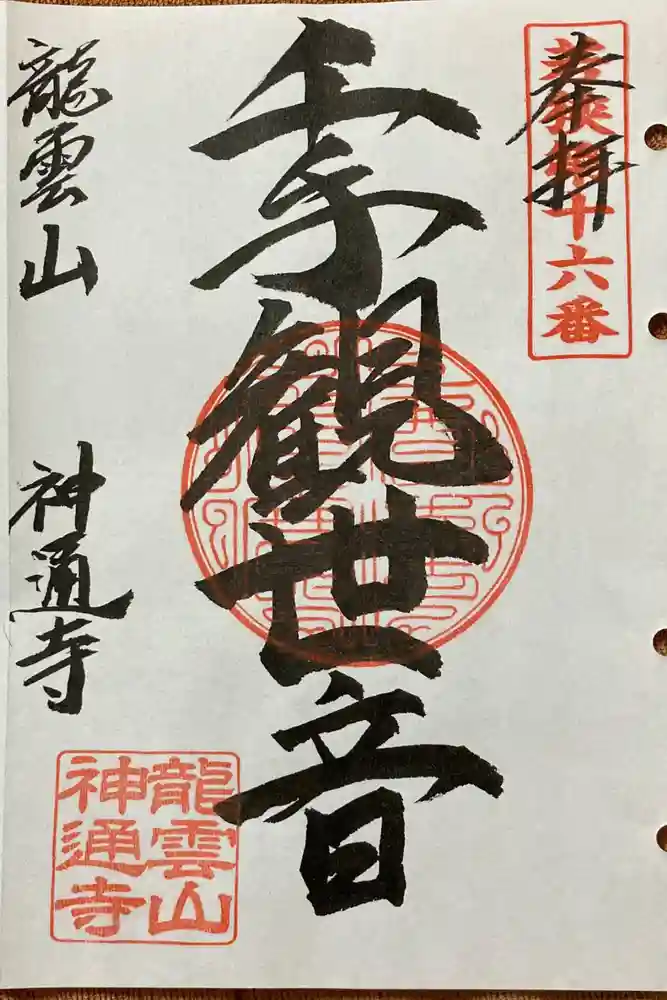 奉拝
十六番
千手観世音
龍雲山
神通寺
龍雲山
神通寺